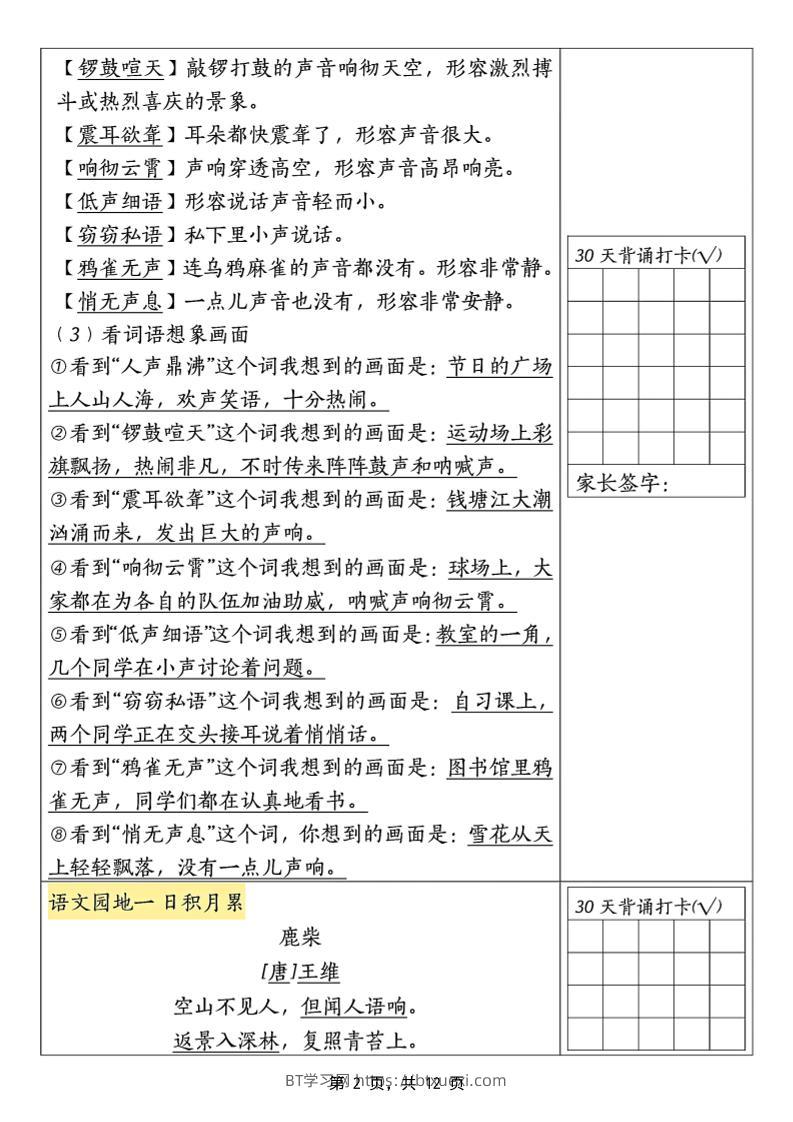 【锣鼓喧天】敲锣打鼓的声音响彻天空，形容激烈搏
斗或热烈喜庆的景象。
【震耳欲聋】耳朵都快震聋了，形容声音很大。
【响彻云霄】声响穿透高空，形容声音高昂响亮。
【低声细语】形容说话声音轻而小。
【窃窃私语】私下里小声说话。
【鸦雀无声】连乌鸦麻雀的声音都没有。形容非常静。
【悄无声息】一点儿声音也没有，形容非常安静。
（3）看词语想象画面
①看到“人声鼎沸”这个词我想到的画面是：节日的广场
上人山人海，欢声笑语，十分热闹。
②看到“锣鼓喧天”这个词我想到的画面是：运动场上彩
旗飘扬，热闹非凡，不时传来阵阵鼓声和呐喊声。
③看到“震耳欲聋”这个词我想到的画面是：钱塘江大潮
汹涌而来，发出巨大的声响。
④看到“响彻云霄”这个词我想到的画面是：球场上，大
家都在为各自的队伍加油助威，呐喊声响彻云霄。
⑤看到“低声细语”这个词我想到的画面是：教室的一角，
几个同学在小声讨论着问题。
⑥看到“窃窃私语”这个词我想到的画面是：自习课上，
两个同学正在交头接耳说着悄悄话。
⑦看到“鸦雀无声”这个词我想到的画面是：图书馆里鸦
雀无声，同学们都在认真地看书。
⑧看到“悄无声息”这个词，你想到的画面是：雪花从天
上轻轻飘落，没有一点儿声响。
30 天背诵打卡(√)
家长签字：
语文园地一 日积月累
鹿柴
[唐]王维
空山不见人，但闻人语响。
返景入深林，复照青苔上。
30 天背诵打卡(√)
第 2 页，共 12 页
BT学习网